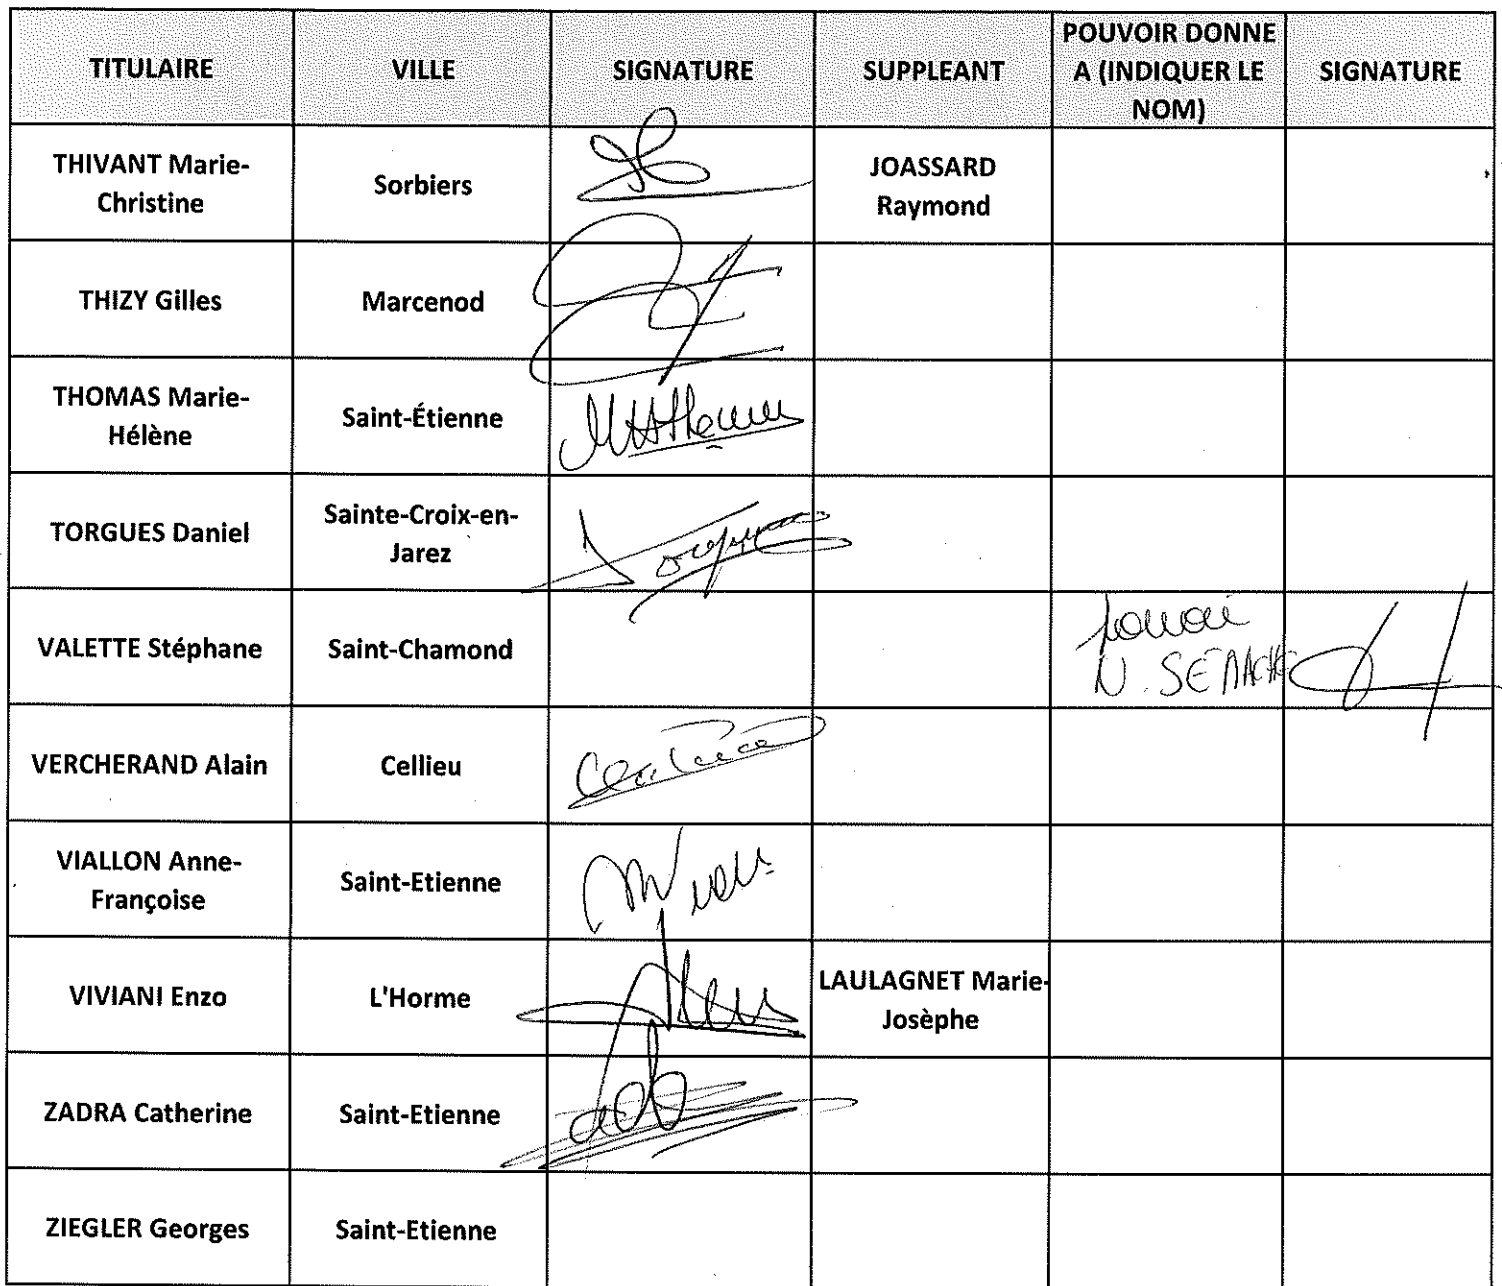 TITULAIRE
VILLE
SIGNATURE
SUPPLEANT
POUVOIR DONNE
A (INDIQUER LE
NOM)
SIGNATURE
THIVANT Marie-
Christine
Sorbiers
JOASSARD
Raymond
THIZY Gilles
Marcenod
THOMAS Marie-
Hélène
Saint-Étienne
TORGUES Daniel
Sainte-Croix-en-
Jarez
VALETTE Stéphane
Saint-Chamond
pouvoir
N.
VERCHERAND Alain
Cellieu
VIALLON Anne-
Françoise
Saint-Etienne
VIVIANI Enzo
L'Horme
LAULAGNET Marie-
Josèphe
ZADRA Catherine
Saint-Etienne
ZIEGLER Georges
Saint-Etienne